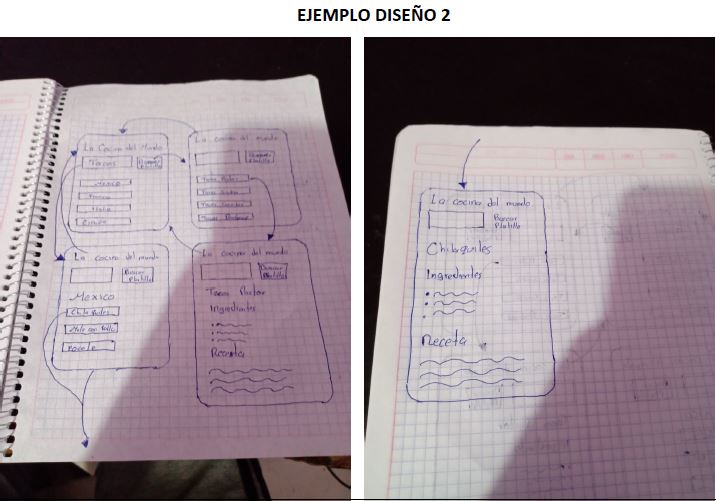 EJEMPLO DISEÑO 2
La Cocina del Mundo
Tacos
Buscar Platillo
Mexico
Francia
Italia
España
La cocina del mundo
Buscar
Platillo
Tacos
Tacos
Tacos
Tacos
La cocina del mundo
Buscar
Platillo
Mexico
Chilaquiles
Mole con Pollo
Pozole
La cocina del mundo
Buscar
Platillo
Tacos Pastor
Ingredientes
Receta
La cocina del mundo
Buscar
Platillo
Chilaquiles
Ingredientes
Receta